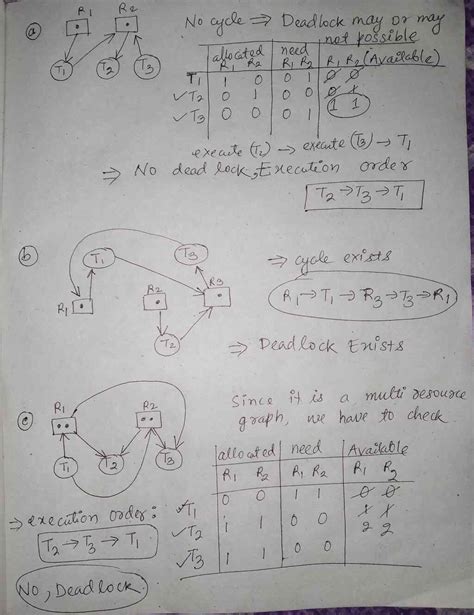 (a)
R1 R2
T1 T2 T3
No cycle ⇒ Deadlock may or may
not possible
allocated need
R1 R2 R1 R2 R1 R2 (Available)
T1 1 0 0 1 0 0
✓T2 0 1 0 0 0 1
✓T3 0 0 0 1 1 1
execute (T2) → execute (T3) → T1
⇒ No dead lock, Execution order
T2 → T3 → T1
(b)
T1 T3
R1 R2 R3
T2
⇒ cycle exists
R1 → T1 → R3 → T3 → R1
⇒ Deadlock Exists
(c)
R1 R2
T1 T2 T3
Since it is a multi resource
graph, we have to check.
allocated need Available
R1 R2 R1 R2 R1 R2
✓T1 0 0 1 1 0 0
✓T2 1 1 0 0 1 1
✓T3 1 1 0 0 2 2
⇒ execution order:
T2 → T3 → T1
No, Deadlock.